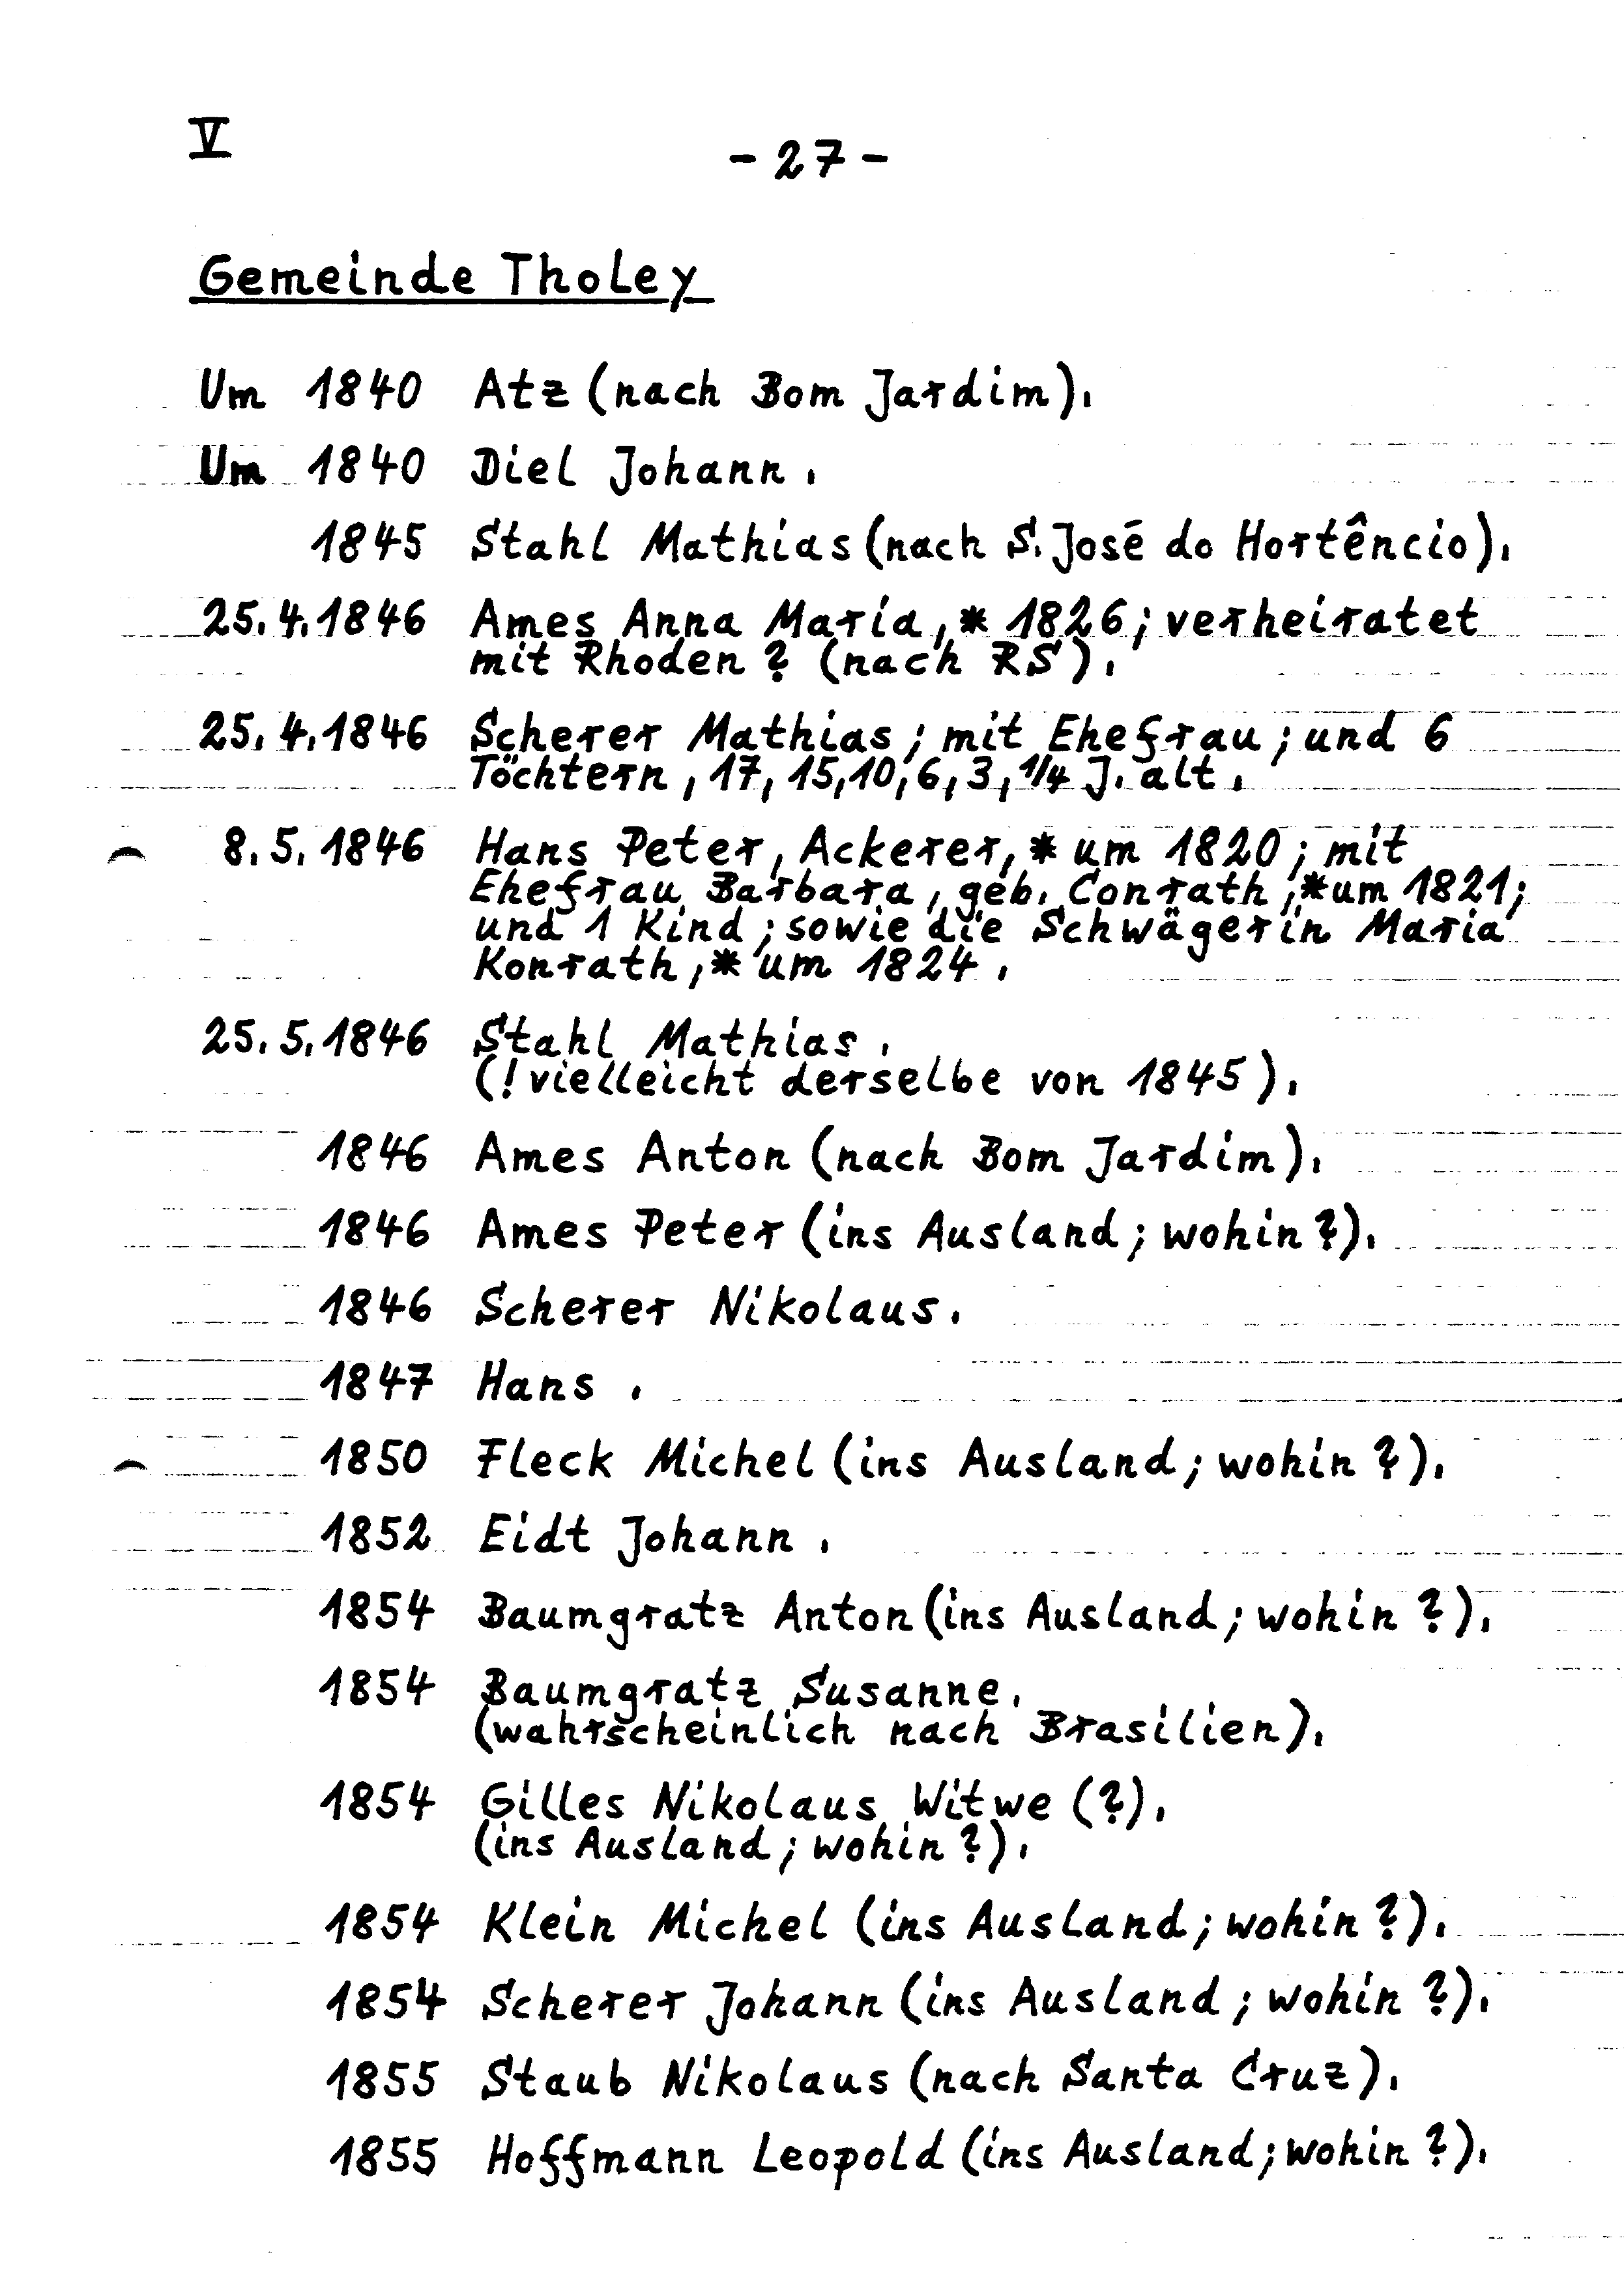 V
- 27 -
Gemeinde Tholey
Um 1840 Atz (nach Bom Jardim).
Um 1840 Diel Johann.
1845 Stahl Mathias (nach S. José do Hortêncio).
25.4.1846 Ames Anna Maria, * 1826; verheiratet
mit Rhoden ? (nach RS).
25.4.1846 Scherer Mathias; mit Ehefrau; und 6
Töchtern, 17, 15, 10, 6, 3, 1/4 J. alt.
8.5.1846 Hans Peter, Ackerer, * um 1820; mit
Ehefrau Barbara, geb. Conrath, * um 1821;
und 1 Kind; sowie die Schwägerin Maria
Konrath, * um 1824.
25.5.1846 Stahl Mathias.
(! vielleicht derselbe von 1845).
1846 Ames Anton (nach Bom Jardim).
1846 Ames Peter (ins Ausland; wohin ?).
1846 Scherer Nikolaus.
1847 Hans.
1850 Fleck Michel (ins Ausland; wohin ?).
1852 Eidt Johann.
1854 Baumgratz Anton (ins Ausland; wohin ?).
1854 Baumgratz Susanne.
(wahrscheinlich nach Brasilien).
1854 Gilles Nikolaus Witwe (?).
(ins Ausland; wohin ?).
1854 Klein Michel (ins Ausland; wohin ?).
1854 Scherer Johann (ins Ausland; wohin ?).
1855 Staub Nikolaus (nach Santa Cruz).
1855 Hoffmann Leopold (ins Ausland; wohin ?).